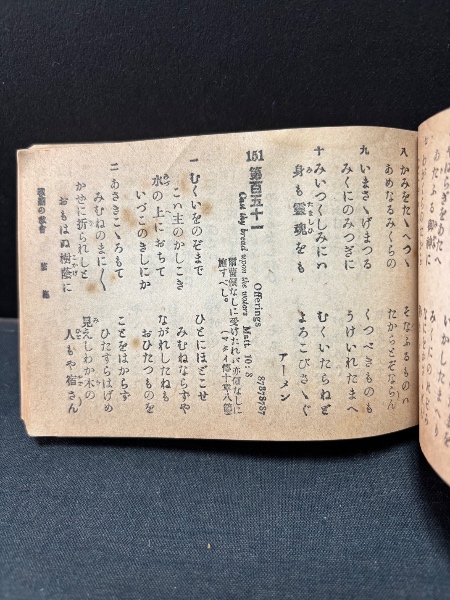 八 かみをたゝへつゝ そなふるものハ
あめなるみくらの たかつとぞならん
九 いまさゝげまつる くつべきものも
みくにのみつぎに うけいれたまへ
十 みいつくしみにハ むくいたらねど
身も霊魂をも よろこびさゝぐ
アーメン
151 第百五十一 Offerings 87878787
Cast thy bread upon the waters Matt 10:8
爾曹價なしに受けたれバ亦價なしに
施すべし。(マタイ傳十章八節)
一 むくいをのぞまで ひとにほどこせ
こハ主のかしこき みむねならずや
水の上におちて ながれしたねも
いづこのきしにか おひたつものを
二 あさきこゝろもて ことをはからず
みむねのまに〱 ひたすらはげめ
かせに折られしと 見えしわか木の
おもはぬ樹蔭に 人もや宿さん